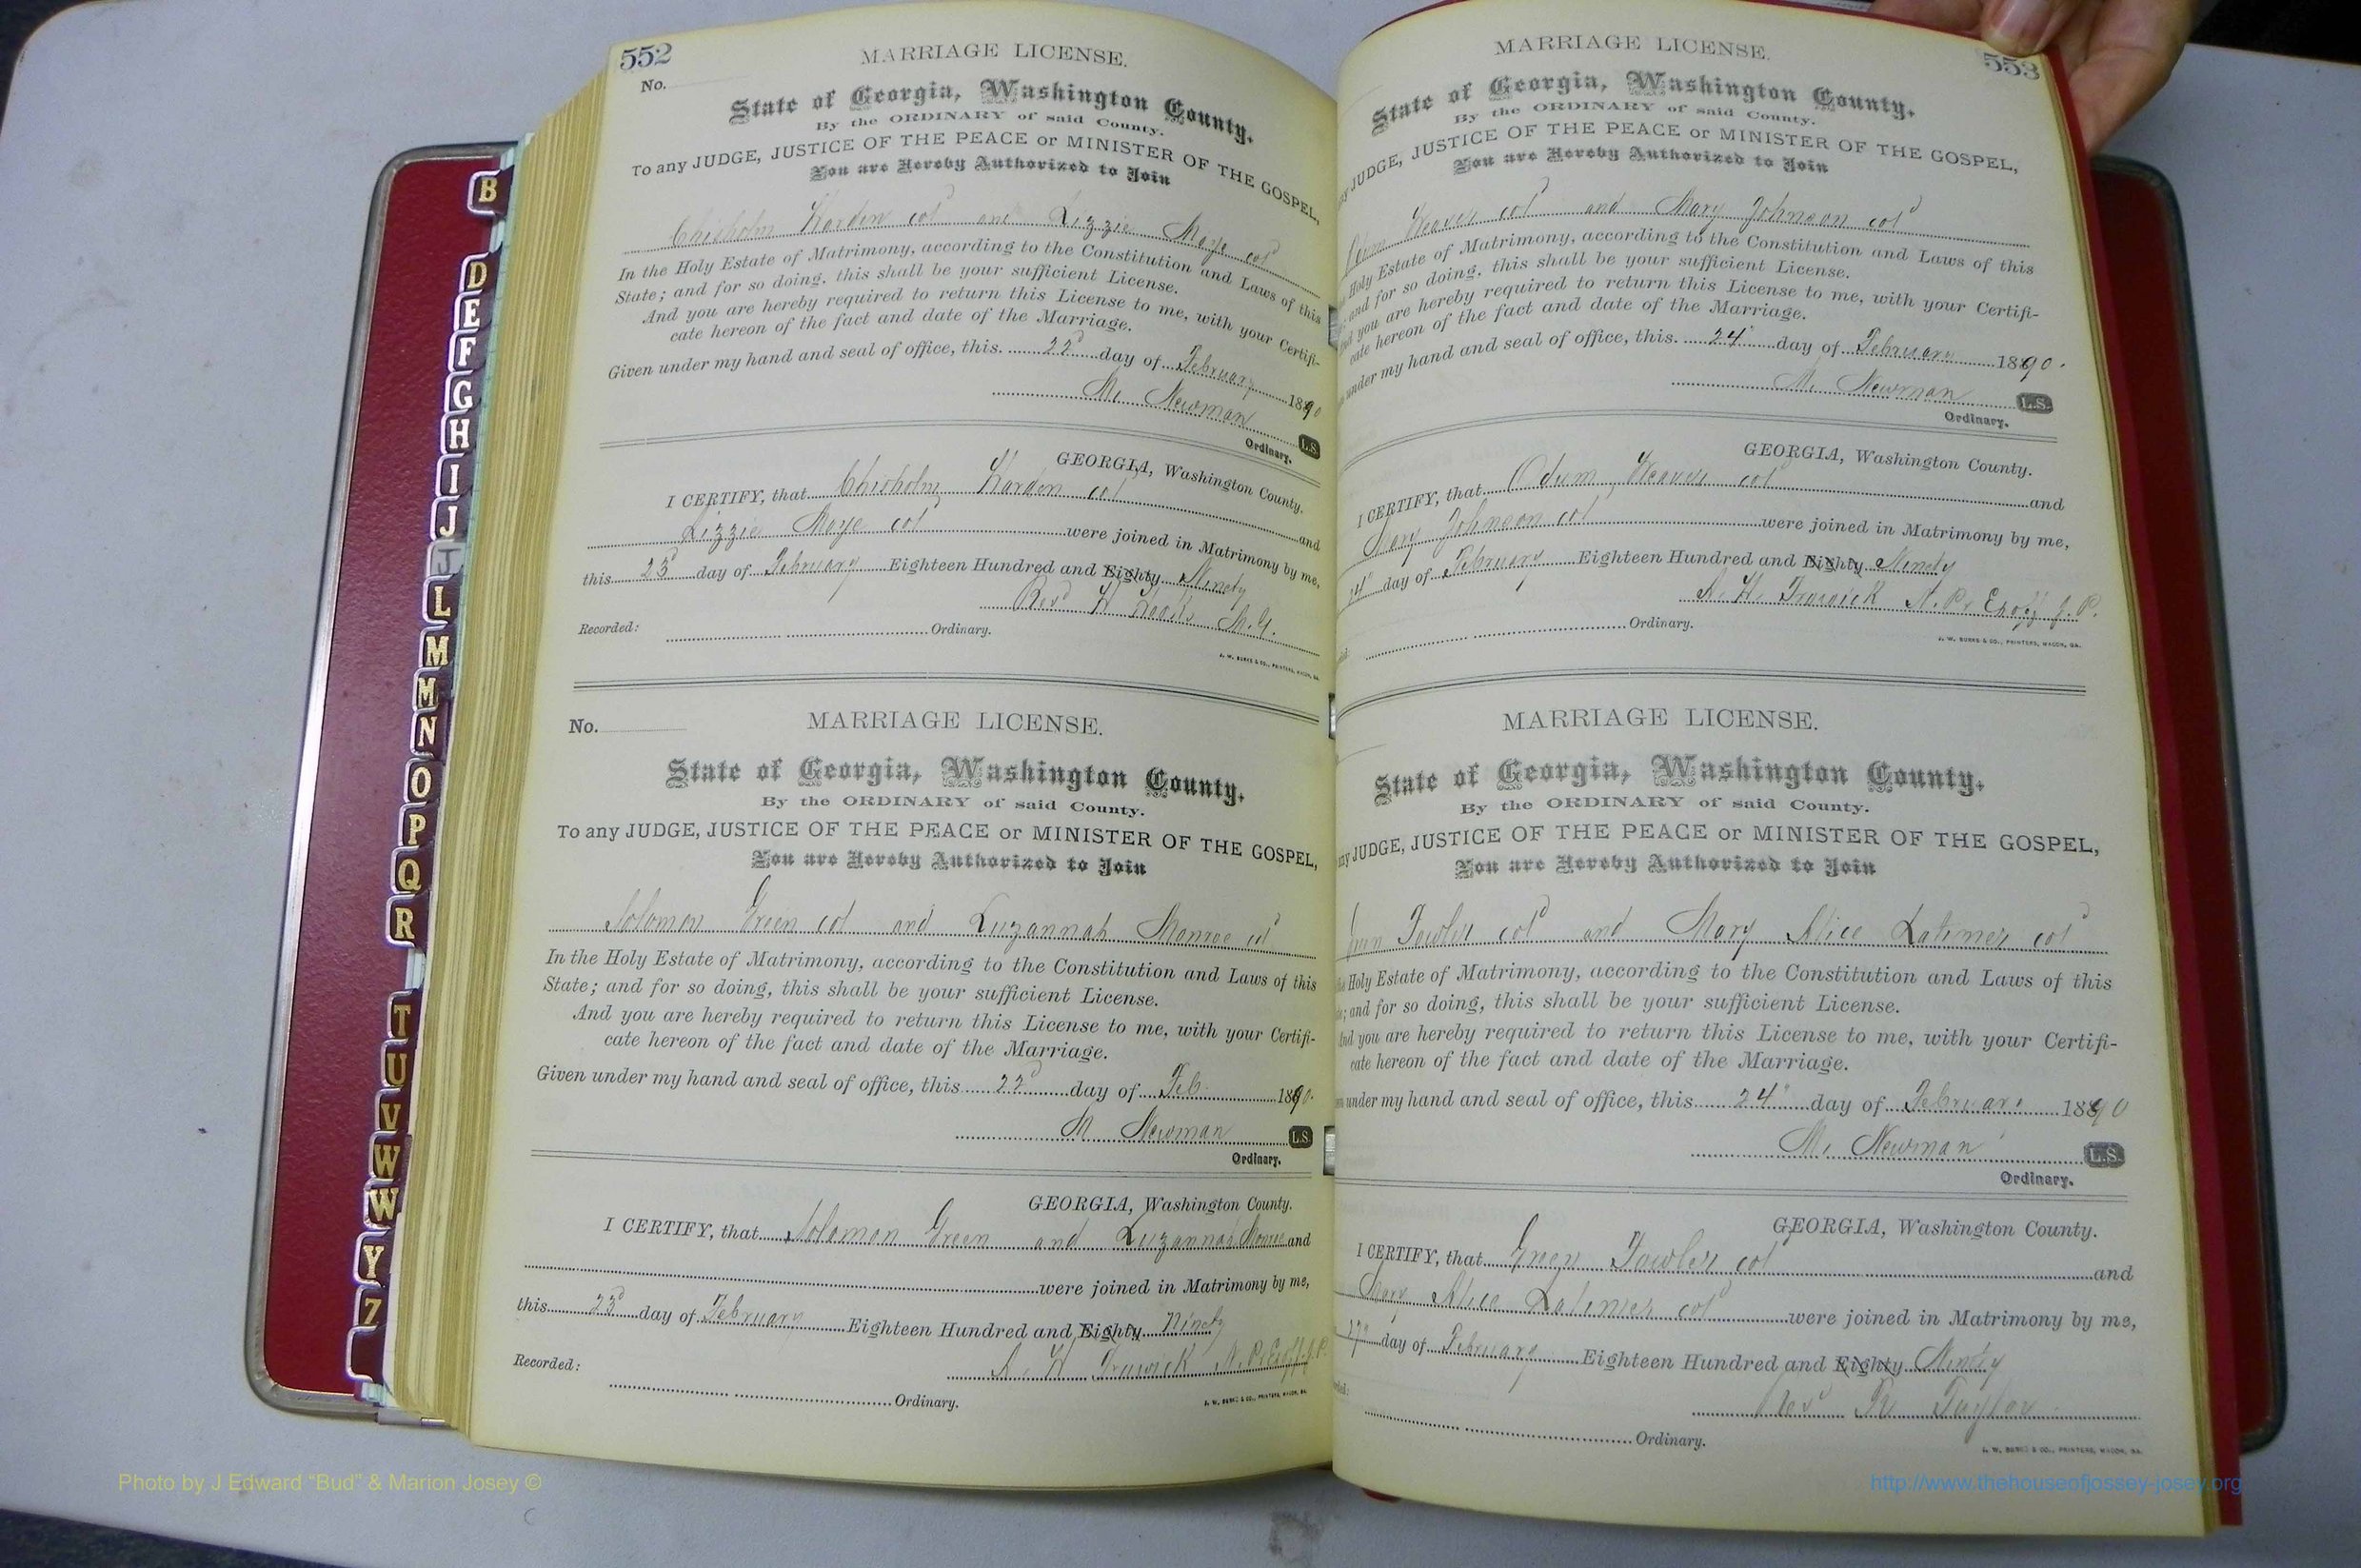 B
D
E
F
G
H
I
J
J
L
M
M
N
O
P
Q
R
T
U
V
W
W
Y
Z
552
MARRIAGE LICENSE.
No.
State of Georgia, Washington County.
By the ORDINARY of said County.
To any JUDGE, JUSTICE OF THE PEACE or MINISTER OF THE GOSPEL,
You are Hereby Authorized to Join
Chisholm Harden cold and Lizzie Moye cold
In the Holy Estate of Matrimony, according to the Constitution and Laws of this
State; and for so doing, this shall be your sufficient License.
And you are hereby required to return this License to me, with your Certifi-
cate hereon of the fact and date of the Marriage.
Given under my hand and seal of office, this 22d day of February 1890
M. Newman L.S.
Ordinary.
GEORGIA, Washington County.
I CERTIFY, that Chisholm Harden cold and
Lizzie Moye cold were joined in Matrimony by me,
this 23d day of February Eighteen Hundred and Eighty Ninety
Revd H Hooks M.G.
Recorded: Ordinary.
J. W. BURKE & CO., PRINTERS, MACON, GA.
No. MARRIAGE LICENSE.
State of Georgia, Washington County.
By the ORDINARY of said County.
To any JUDGE, JUSTICE OF THE PEACE or MINISTER OF THE GOSPEL,
You are Hereby Authorized to Join
Solomon Green col and Luzannah Monroe cld
In the Holy Estate of Matrimony, according to the Constitution and Laws of this
State; and for so doing, this shall be your sufficient License.
And you are hereby required to return this License to me, with your Certifi-
cate hereon of the fact and date of the Marriage.
Given under my hand and seal of office, this 22d day of Feb 1890.
M Newman L.S.
Ordinary.
GEORGIA, Washington County.
I CERTIFY, that Solomon Green and Luzannah Monroe and
were joined in Matrimony by me,
this 23d day of February Eighteen Hundred and Eighty Ninety
H N.P. J.P.
Recorded: Ordinary.
J. W. BURKE & CO., PRINTERS, MACON, GA.
553
MARRIAGE LICENSE.
State of Georgia, Washington County.
By the ORDINARY of said County.
JUDGE, JUSTICE OF THE PEACE or MINISTER OF THE GOSPEL,
You are Hereby Authorized to Join
Weaver cold and Mary Johnson cold
Holy Estate of Matrimony, according to the Constitution and Laws of this
and for so doing, this shall be your sufficient License.
you are hereby required to return this License to me, with your Certifi-
cate hereon of the fact and date of the Marriage.
under my hand and seal of office, this 24" day of February 1890.
M. Newman L.S.
Ordinary.
GEORGIA, Washington County.
I CERTIFY, that Odum Weaver cold and
Mary Johnson cold were joined in Matrimony by me,
day of February Eighteen Hundred and Eighty Ninety
H. N.P. J.P.
Ordinary.
J. W. BURKE & CO., PRINTERS, MACON, GA.
MARRIAGE LICENSE.
State of Georgia, Washington County.
By the ORDINARY of said County.
JUDGE, JUSTICE OF THE PEACE or MINISTER OF THE GOSPEL,
You are Hereby Authorized to Join
Fowler cold and Mary Alice Latimer cold
Holy Estate of Matrimony, according to the Constitution and Laws of this
and for so doing, this shall be your sufficient License.
you are hereby required to return this License to me, with your Certifi-
cate hereon of the fact and date of the Marriage.
under my hand and seal of office, this 24" day of February 1890
M. Newman L.S.
Ordinary.
GEORGIA, Washington County.
I CERTIFY, that Green Fowler cold and
Mary Alice Latimer cold were joined in Matrimony by me,
day of February Eighteen Hundred and Eighty Ninety
Revd R Taylor
Ordinary.
J. W. BURKE & CO., PRINTERS, MACON, GA.
Photo by J Edward "Bud" & Marion Josey ©
http://www.thehouseofjossey-josey.org